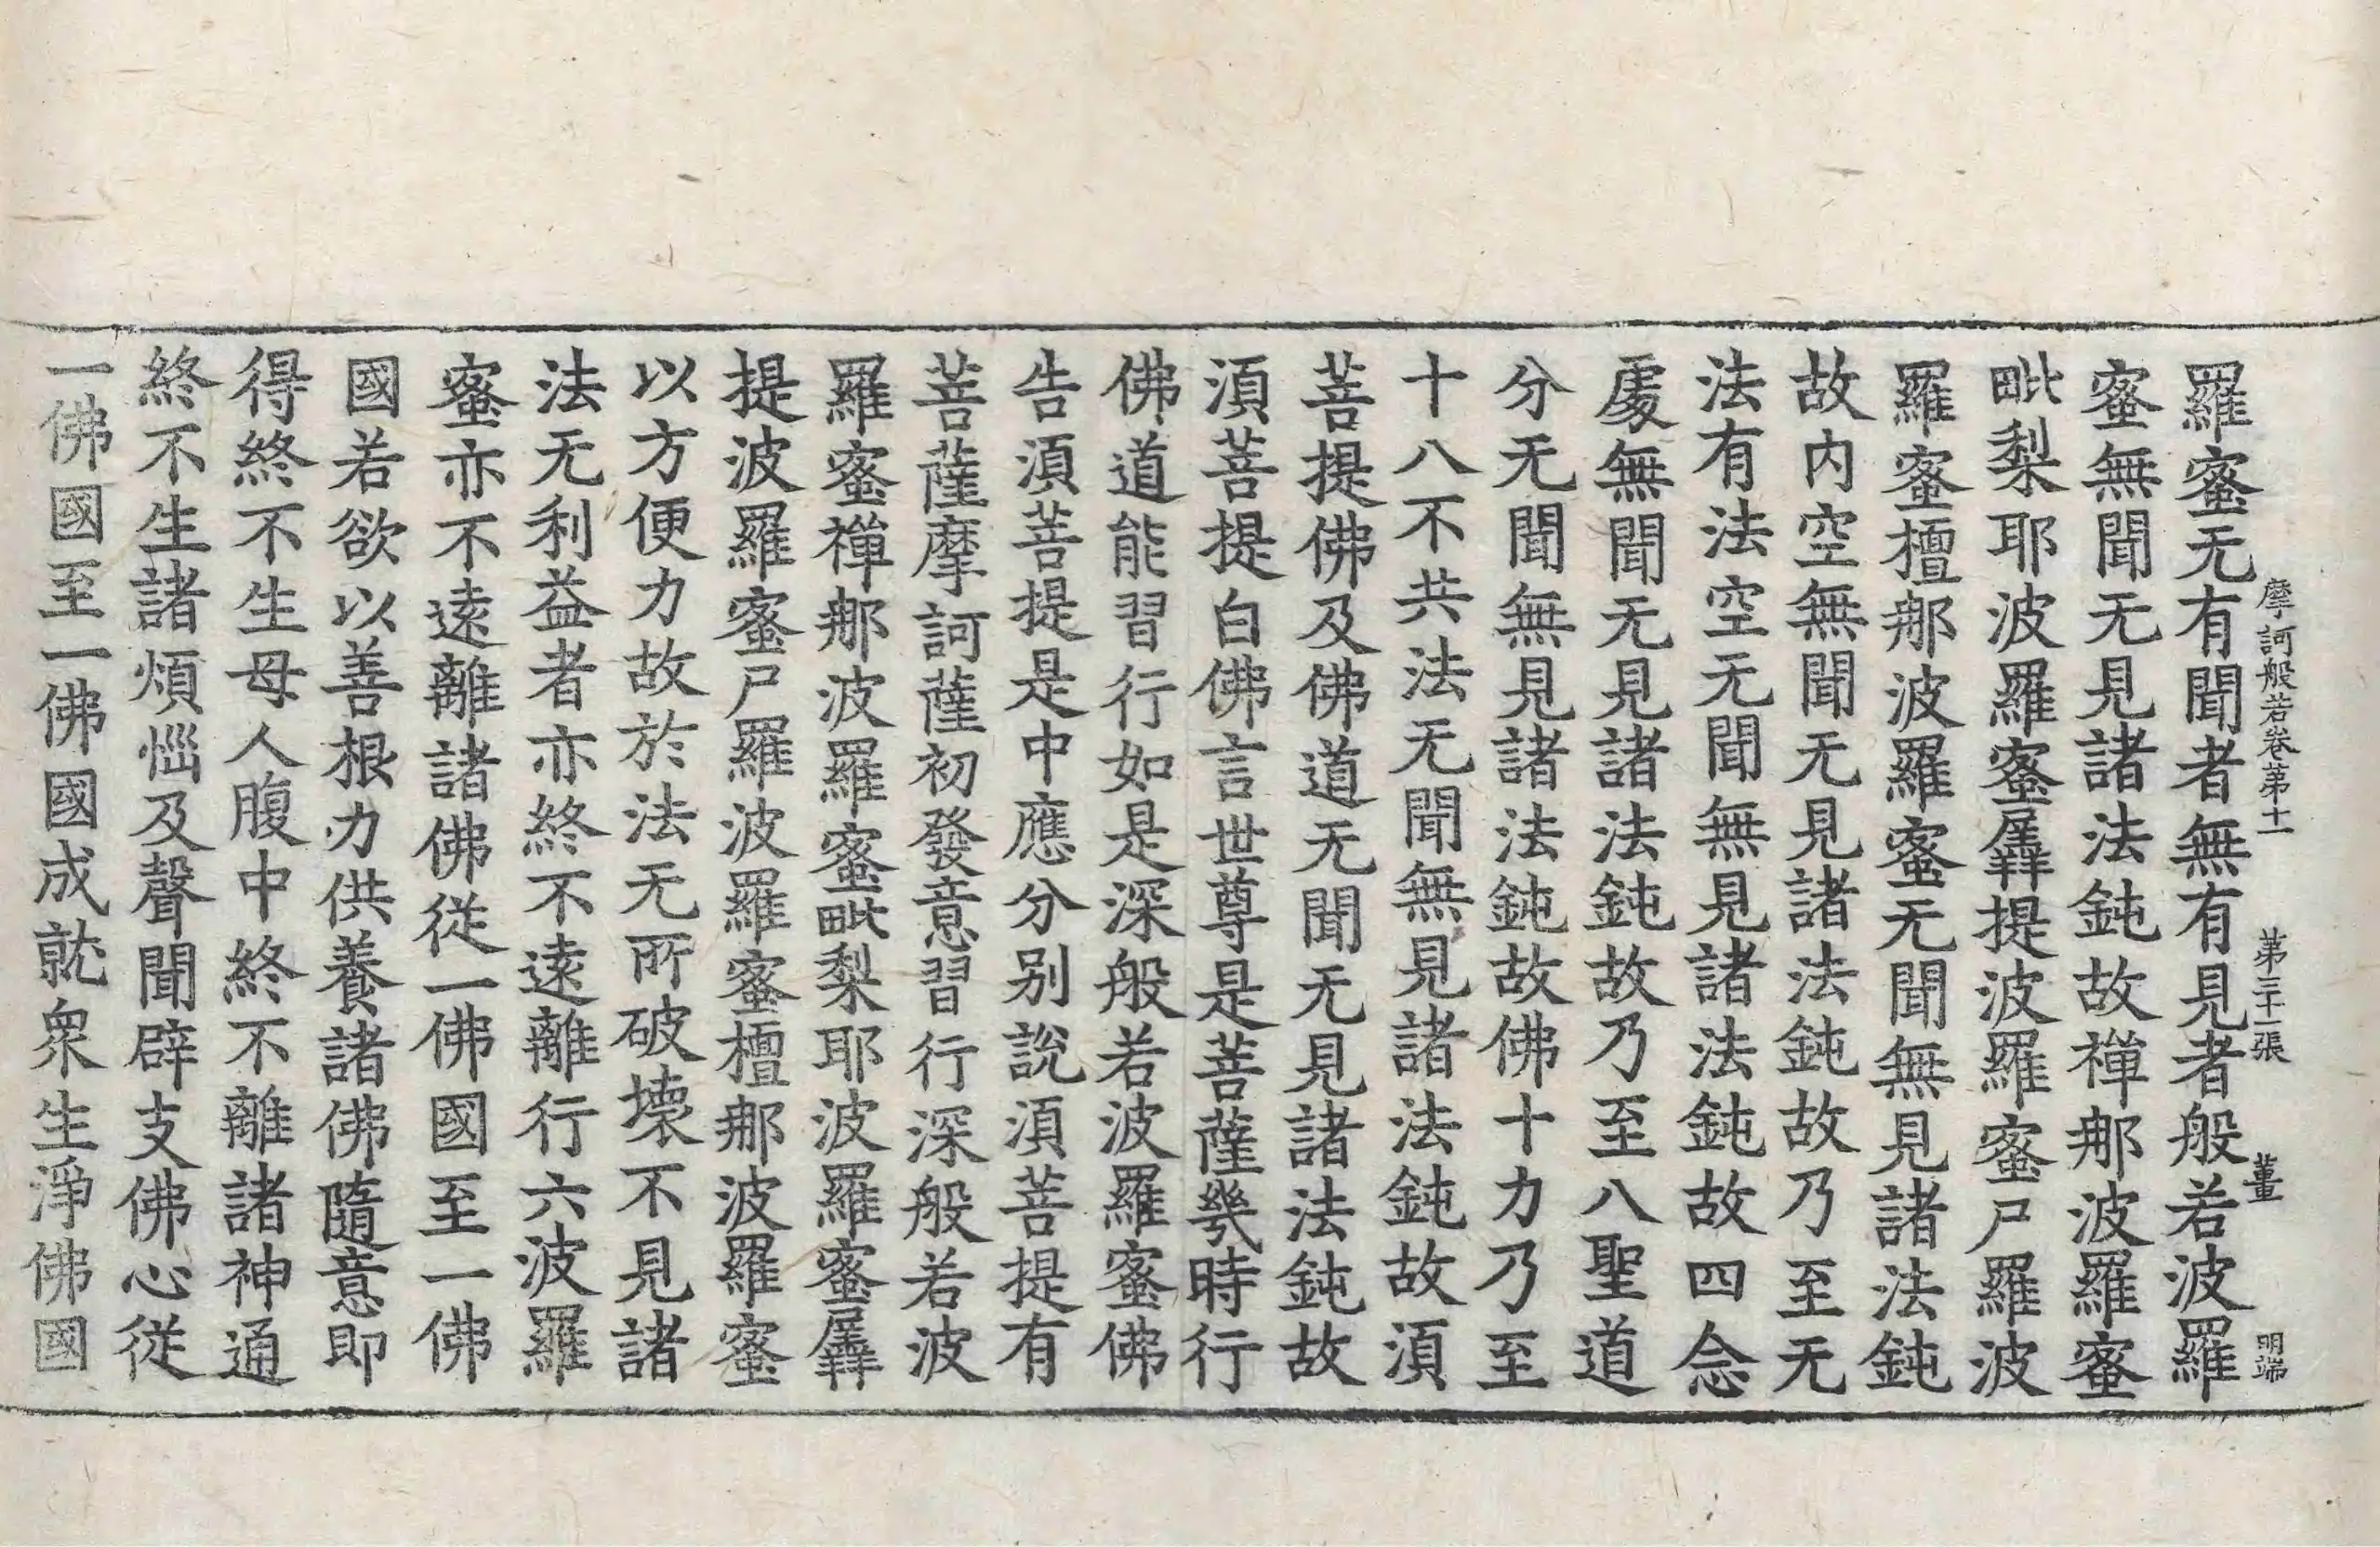 摩訶般若卷第十一　第三十一張　董畫　明端
羅蜜无有聞者無有見者般若波羅
蜜無聞无見諸法鈍故禪那波羅蜜
毗梨耶波羅蜜羼提波羅蜜尸羅波
羅蜜檀那波羅蜜无聞無見諸法鈍
故内空無聞无見諸法鈍故乃至无
法有法空无聞無見諸法鈍故四念
處無聞无見諸法鈍故乃至八聖道
分无聞無見諸法鈍故佛十力乃至
十八不共法无聞無見諸法鈍故湏
菩提佛及佛道无聞无見諸法鈍故
湏菩提白佛言世尊是菩薩幾時行
佛道能習行如是深般若波羅蜜佛
告湏菩提是中應分别說湏菩提有
菩薩摩訶薩初發意習行深般若波
羅蜜禪那波羅蜜毗梨耶波羅蜜羼
提波羅蜜尸羅波羅蜜檀那波羅蜜
以方便力故於法无所破壞不見諸
法无利益者亦終不遠離行六波羅
蜜亦不遠離諸佛從一佛國至一佛
國若欲以善根力供養諸佛隨意即
得終不生母人腹中終不離諸神通
終不生諸煩惱及聲聞辟支佛心從
一佛國至一佛國成就衆生淨佛國